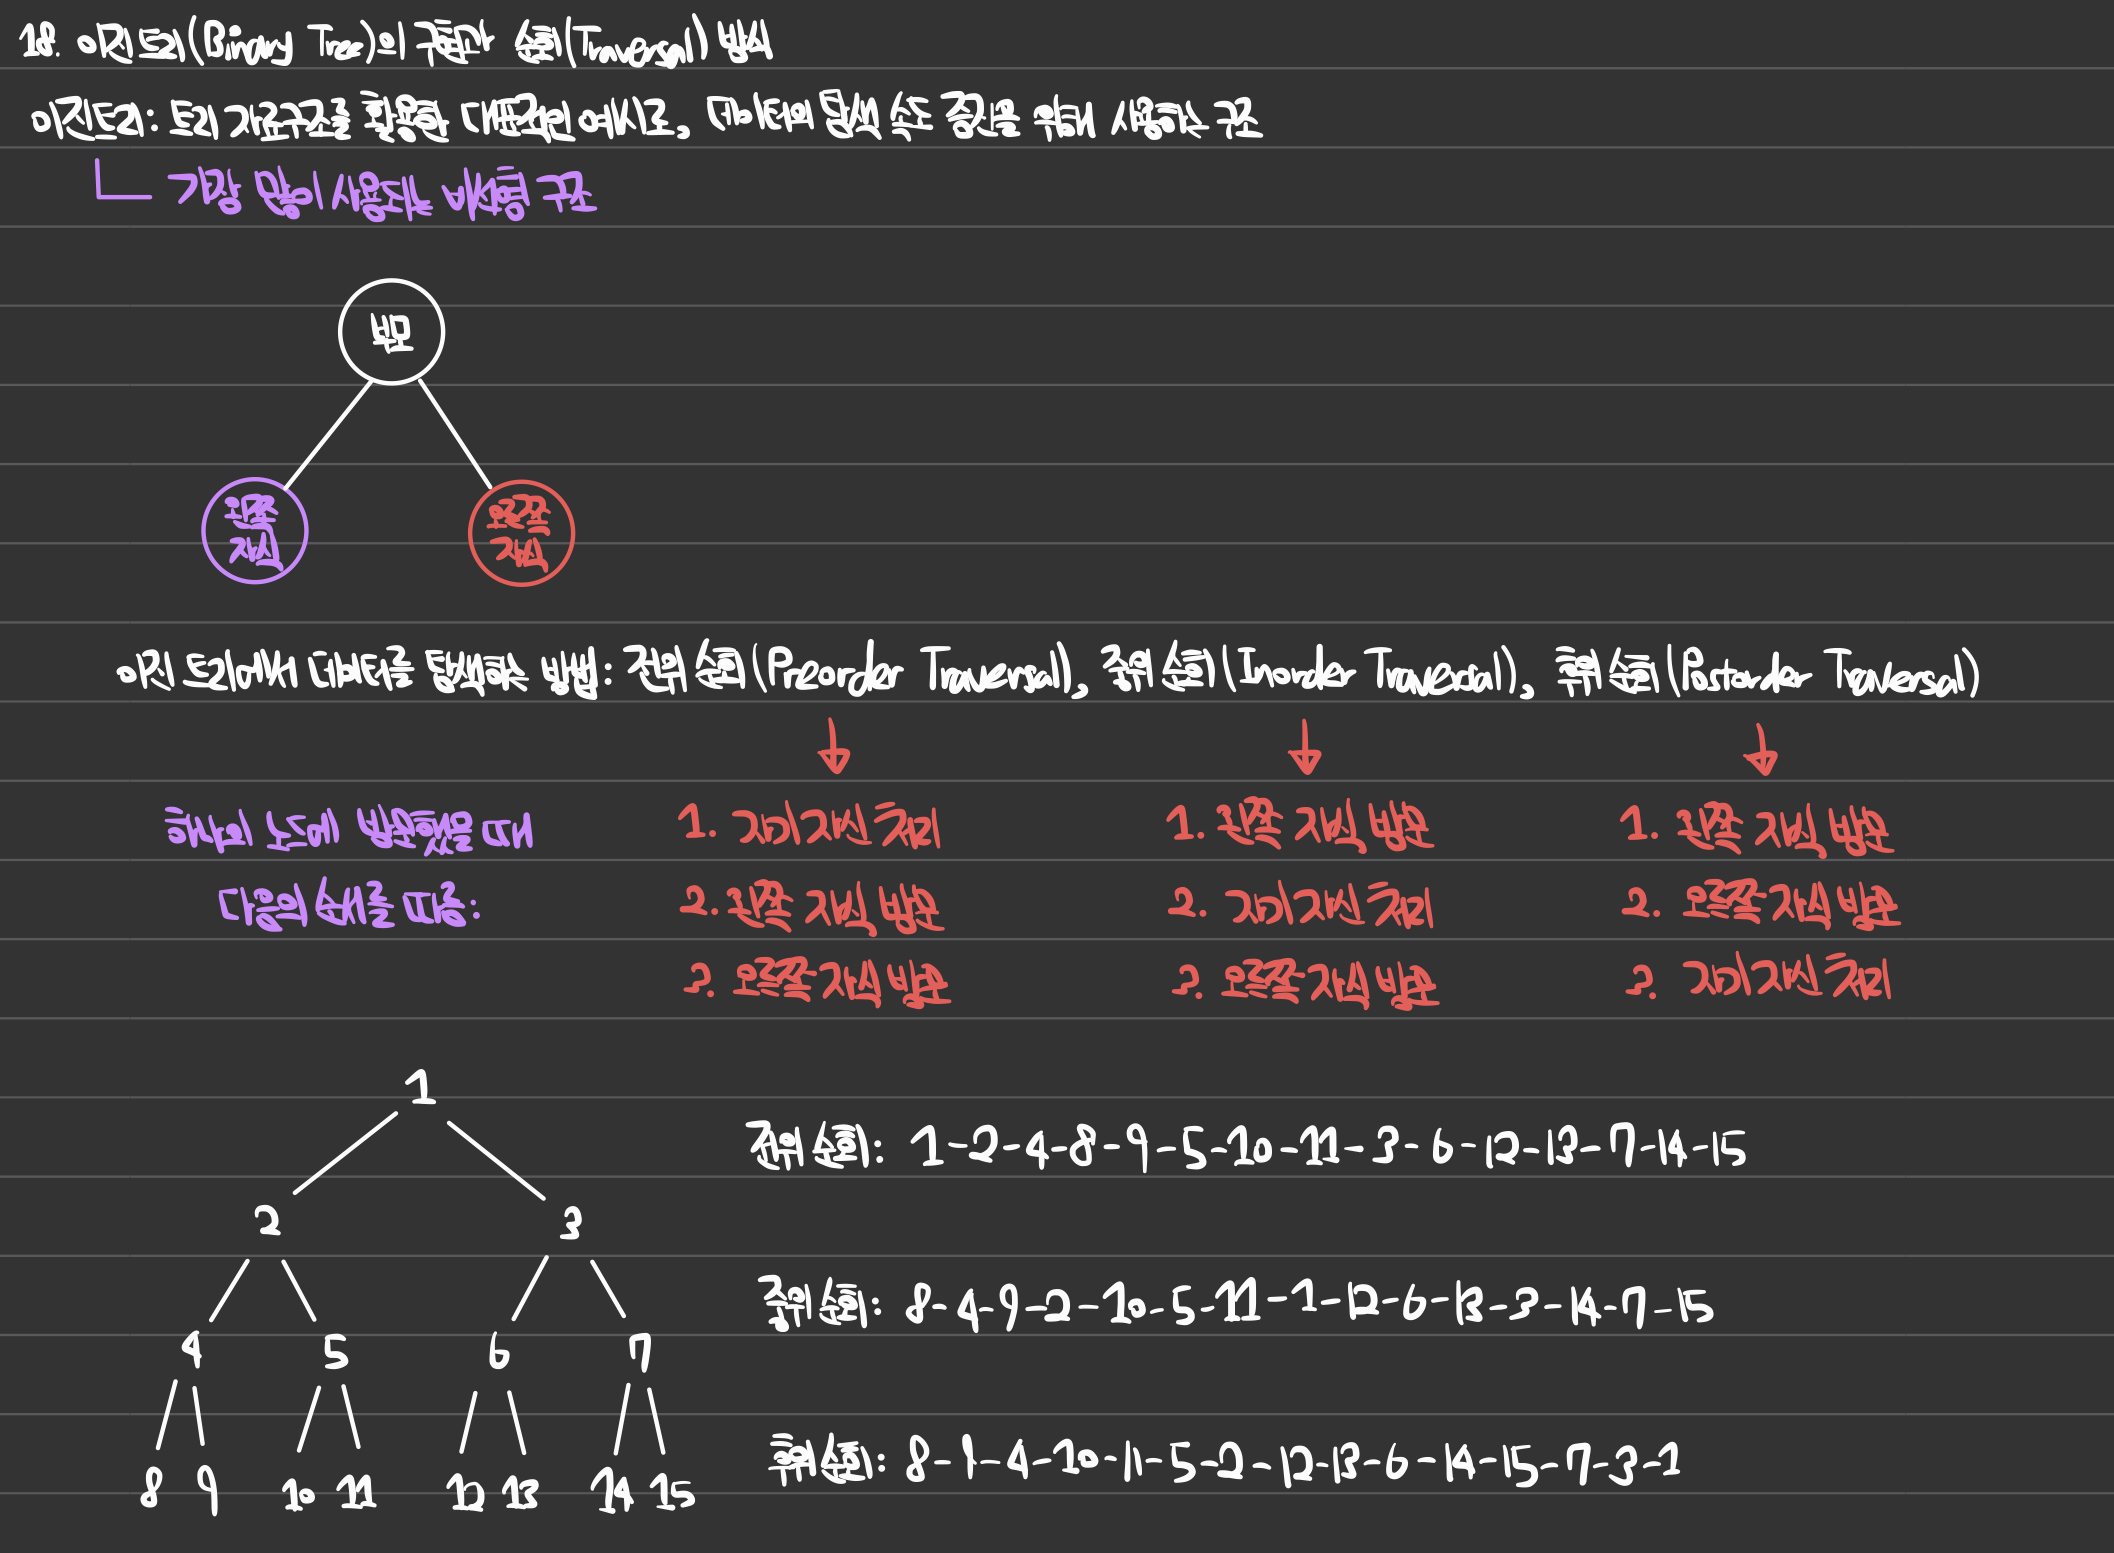 18. 이진트리(Binary Tree)의 구현과 순회(Traversal) 방식
이진트리: 트리 자료구조를 활용한 대표적인 예시로, 데이터의 탐색 속도 증진을 위해 사용하는 구조
가장 많이 사용되는 비선형 구조
부모
왼쪽
자식
오른쪽
자식
이진 트리에서 데이터를 탐색하는 방법: 전위 순회(Preorder Traversal), 중위 순회(Inorder Traversal), 후위 순회(Postorder Traversal)
하나의 노드에 방문했을 때
다음의 순서를 따름:
1. 자기 자신 처리
2. 왼쪽 자식 방문
3. 오른쪽 자식 방문
1. 왼쪽 자식 방문
2. 자기 자신 처리
3. 오른쪽 자식 방문
1. 왼쪽 자식 방문
2. 오른쪽 자식 방문
3. 자기 자신 처리
1
2 3
4 5 6 7
8 9 10 11 12 13 14 15
전위 순회: 1-2-4-8-9-5-10-11-3-6-12-13-7-14-15
중위 순회: 8-4-9-2-10-5-11-1-12-6-13-3-14-7-15
후위 순회: 8-9-4-10-11-5-2-12-13-6-14-15-7-3-1